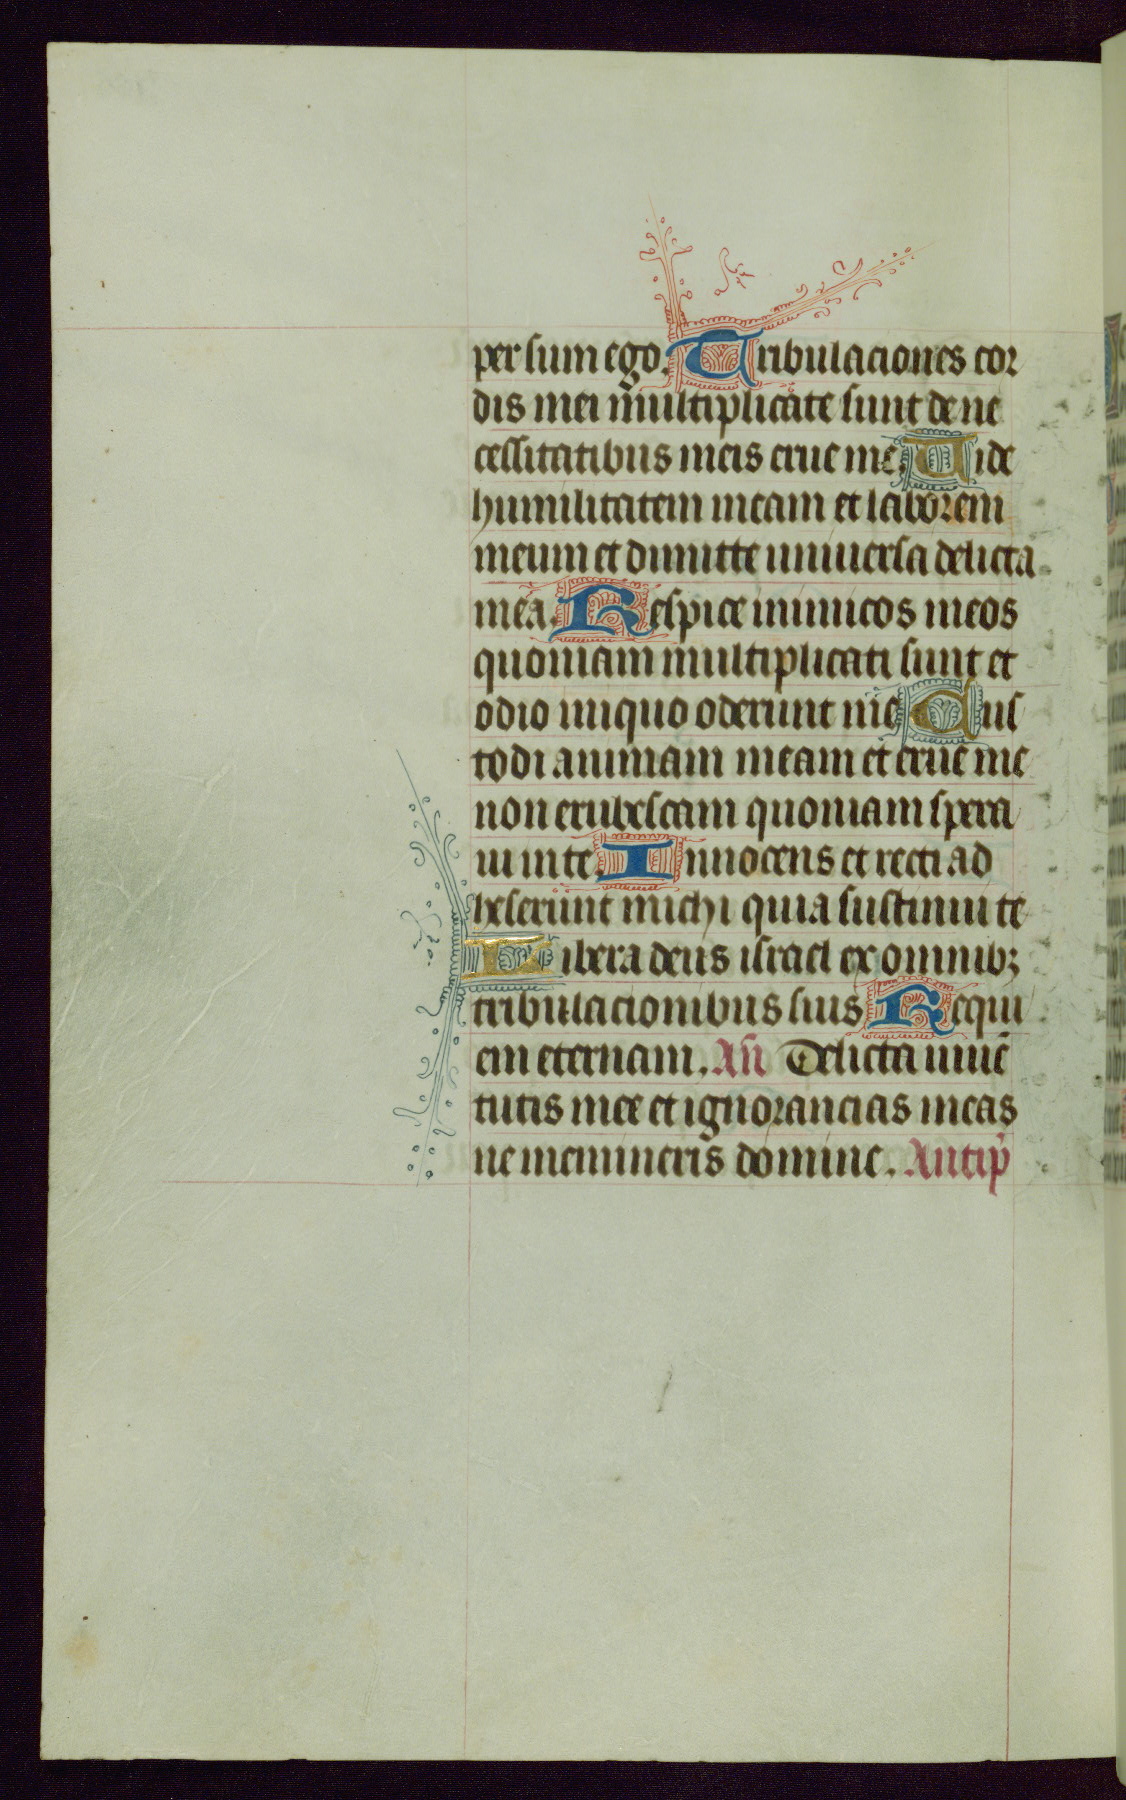 per sum ego. Tribulaciones cor
dis mei multiplicate sunt de ne
cessitatibus meis erue me. Uide
humilitatem meam et laborem
meum et dimitte uniuersa delicta
mea. Respice inimicos meos
quoniam multiplicati sunt et
odio iniquo oderunt me Cus
todi animam meam et erue me
non erubescam quoniam spera
ui in te. Innocens et recti ad
heserunt michi quia sustinui te
Libera deus israel ex omnibꝫ
tribulacionibus suis Requi
em eternam. An̄ Delicta iuuē
tutis mee et ignorancias meas
ne memineris domine. Antip̄